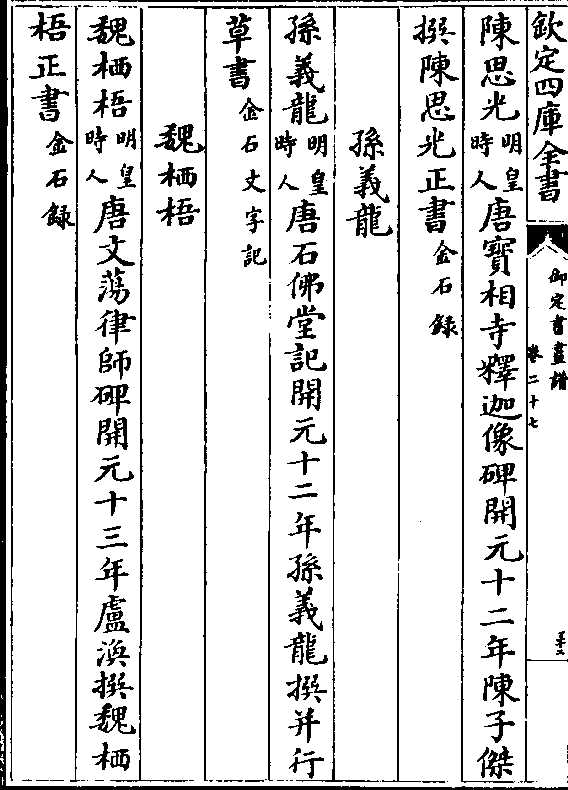 欽定四庫全書
御定書畫譜
卷二十七
陳思光明皇時人唐寶相寺釋迦像碑開元十二年陳子傑
撰陳思光正書金石錄
孫義龍
孫義龍明皇時人唐石佛堂記開元十二年孫義龍撰并行
草書金石文字記
魏栖梧
魏栖梧明皇時人唐文蕩律師碑開元十三年盧渙撰魏栖
梧正書金石錄